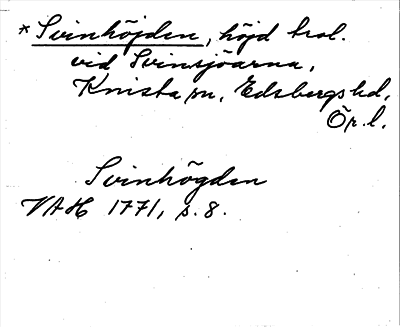 *Svinhöjden, höjd trol.
vid Svinsjöarna,
Knista sn, Edsbergs hd,
Ör. l.
Svinhögden
VAH 1771, s. 8.